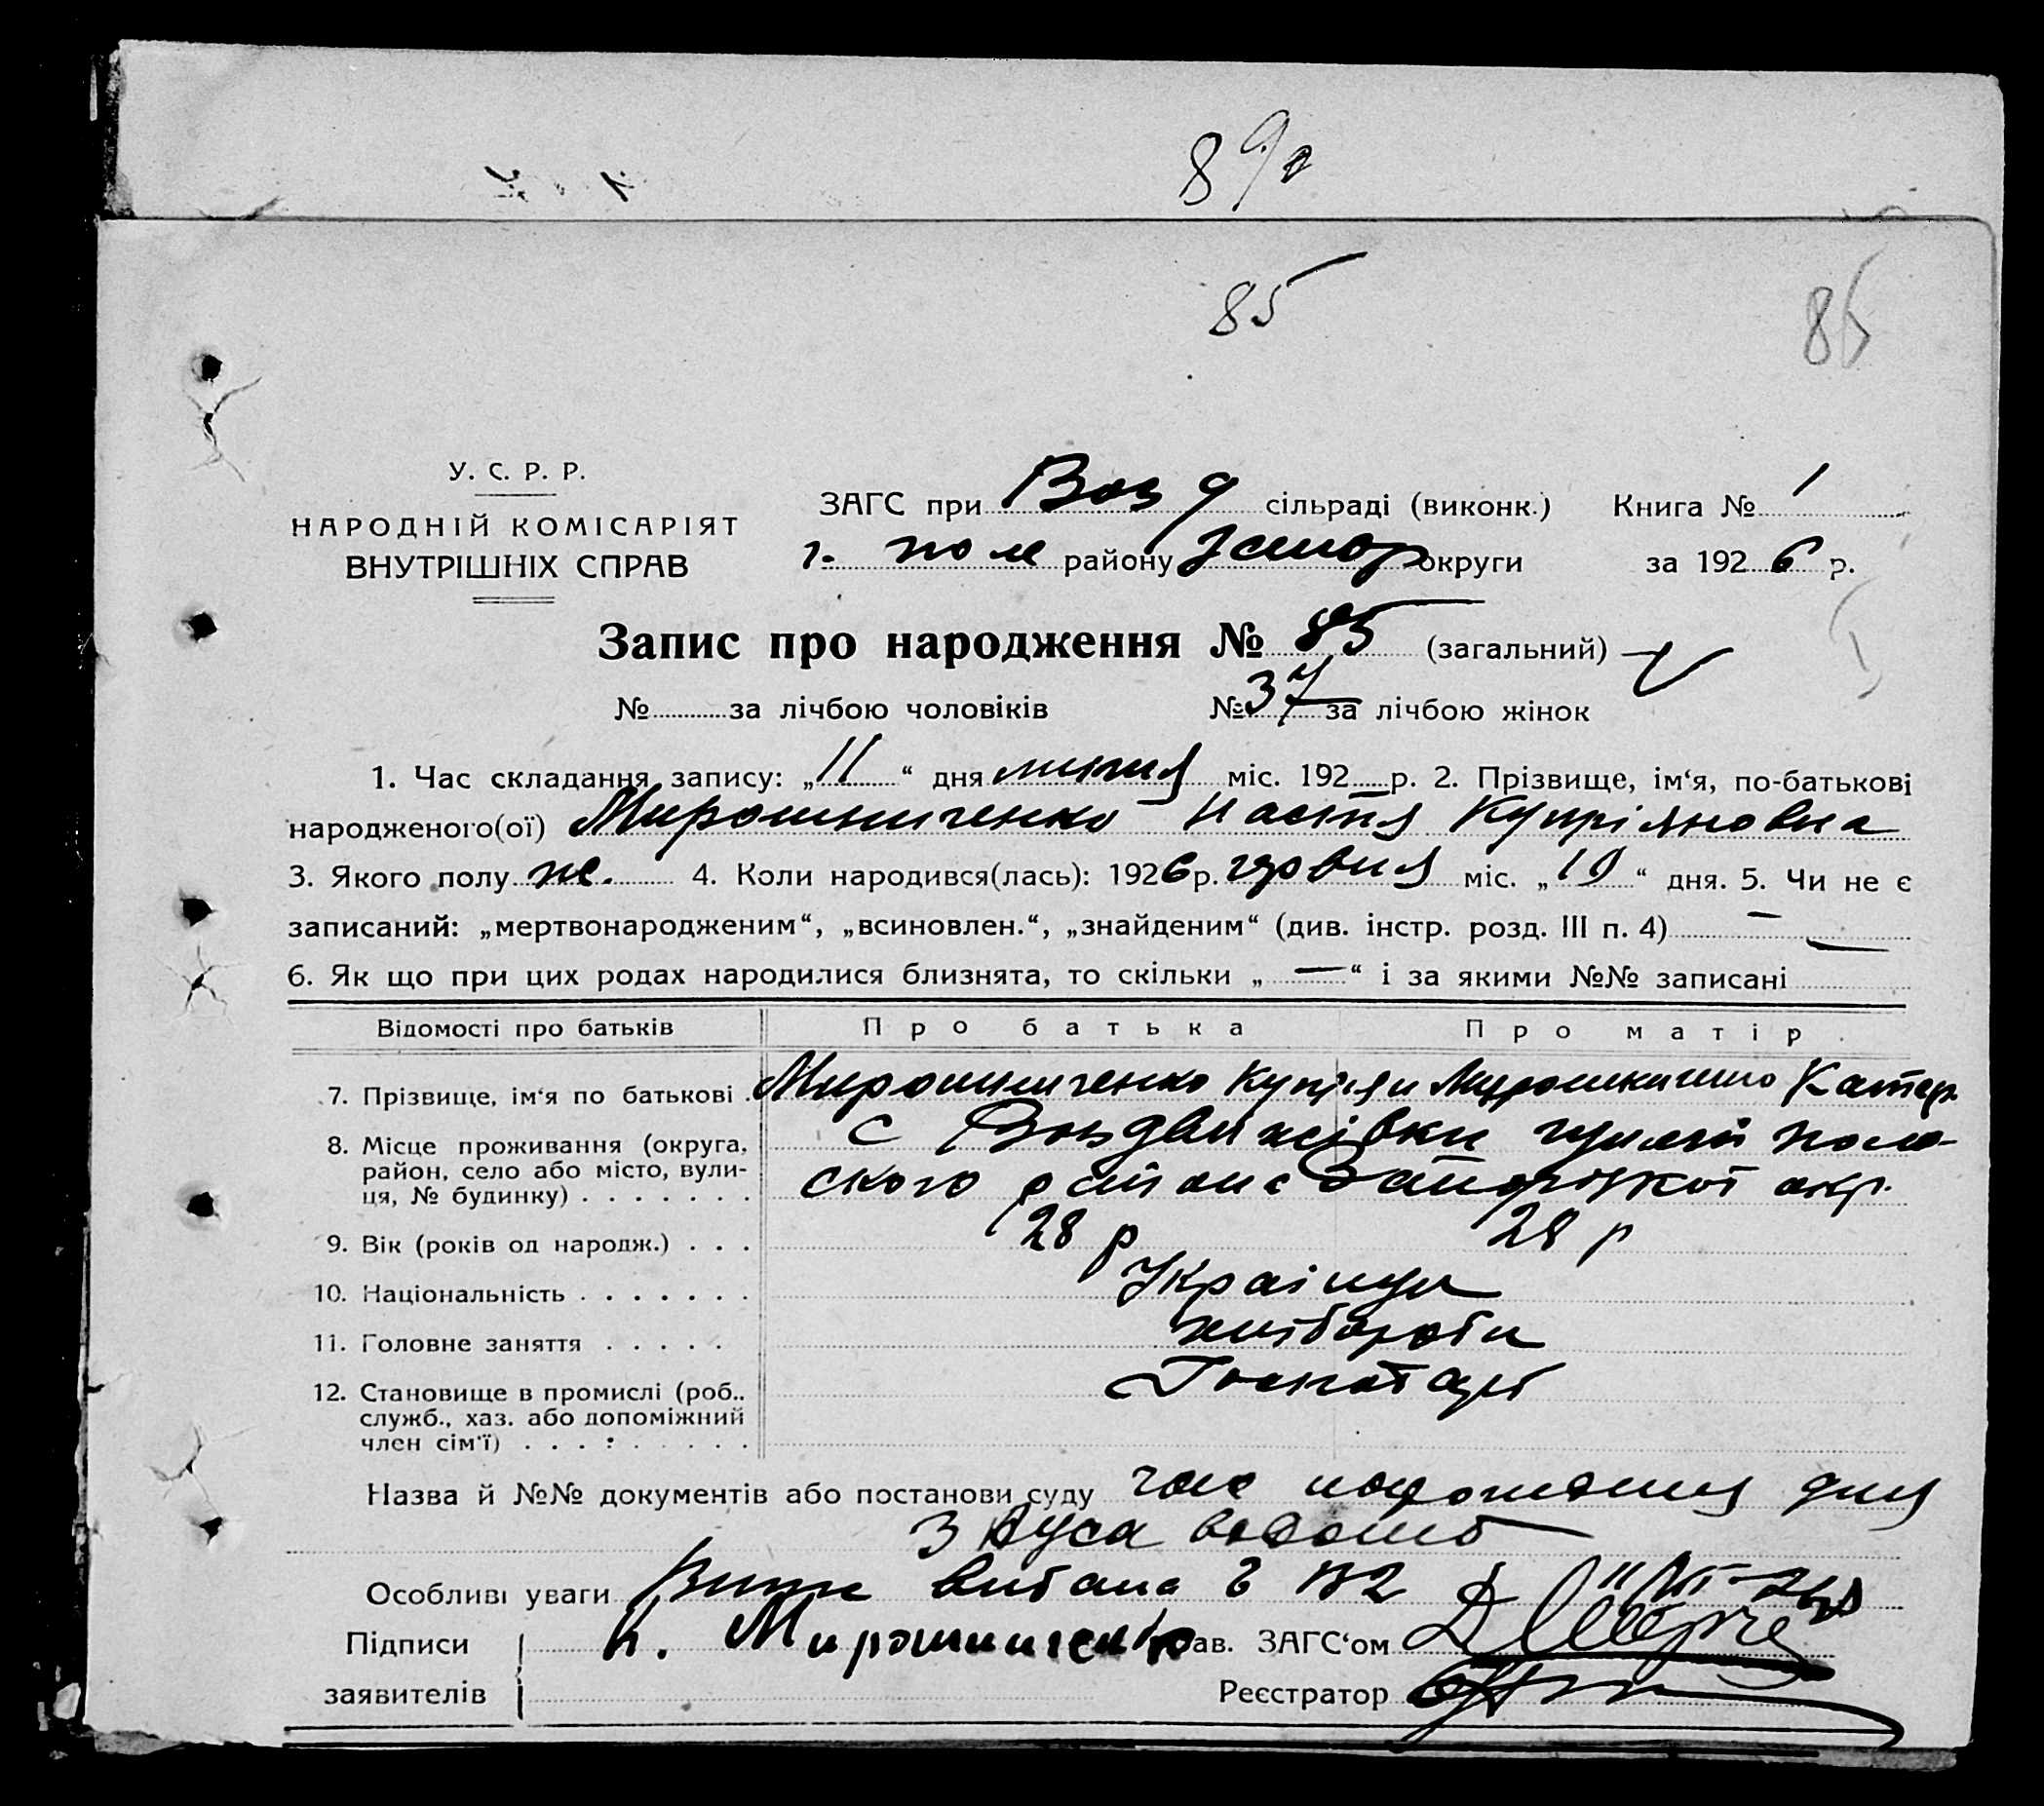 85
85
У. С. Р. Р.
НАРОДНІЙ КОМІСАРІЯТ
ВНУТРІШНІХ СПРАВ
ЗАГС при Возд сільраді (виконк.) Книга № 1
г. пол району Запор округи за 1926 р.
Запис про народження № 85 (загальний)
№ за лічбою чоловіків № 37 за лічбою жінок
1. Час складання запису: „11“ дня липня міс. 192 р. 2. Прізвище, ім‘я, по-батькові
народженого(ої) Мирошниченко Настя Купріяновна
3. Якого полу ж. 4. Коли народився(лась): 1926 р. червня міс. „19“ дня. 5. Чи не є
записаний: „мертвонародженим“, „всиновлен.“, „знайденим“ (див. інстр. розд. III п. 4) —
6. Як що при цих родах народилися близнята, то скільки „—“ і за якими №№ записані
Відомості про батьків Про батька Про матір
7. Прізвище, ім‘я по батькові Мирошниченко Купріян Мирошниченко Катер.
8. Місце проживання (округа, с Воздвижівки гуляй поль-
район, село або місто, вули-
ця, № будинку) ського района Запорізкоі окр.
9. Вік (років од народж.) 28 р 28 р
10. Національність Українци
11. Головне заняття хлібороби
12. Становище в промислі (роб.,
служб., хаз. або допоміжний
член сім‘ї)
Назва й №№ документів або постанови суду
З
Особливі уваги видана
Підписи К. Мирошниченко Зав. ЗАГС‘ом
заявителів Реєстратор